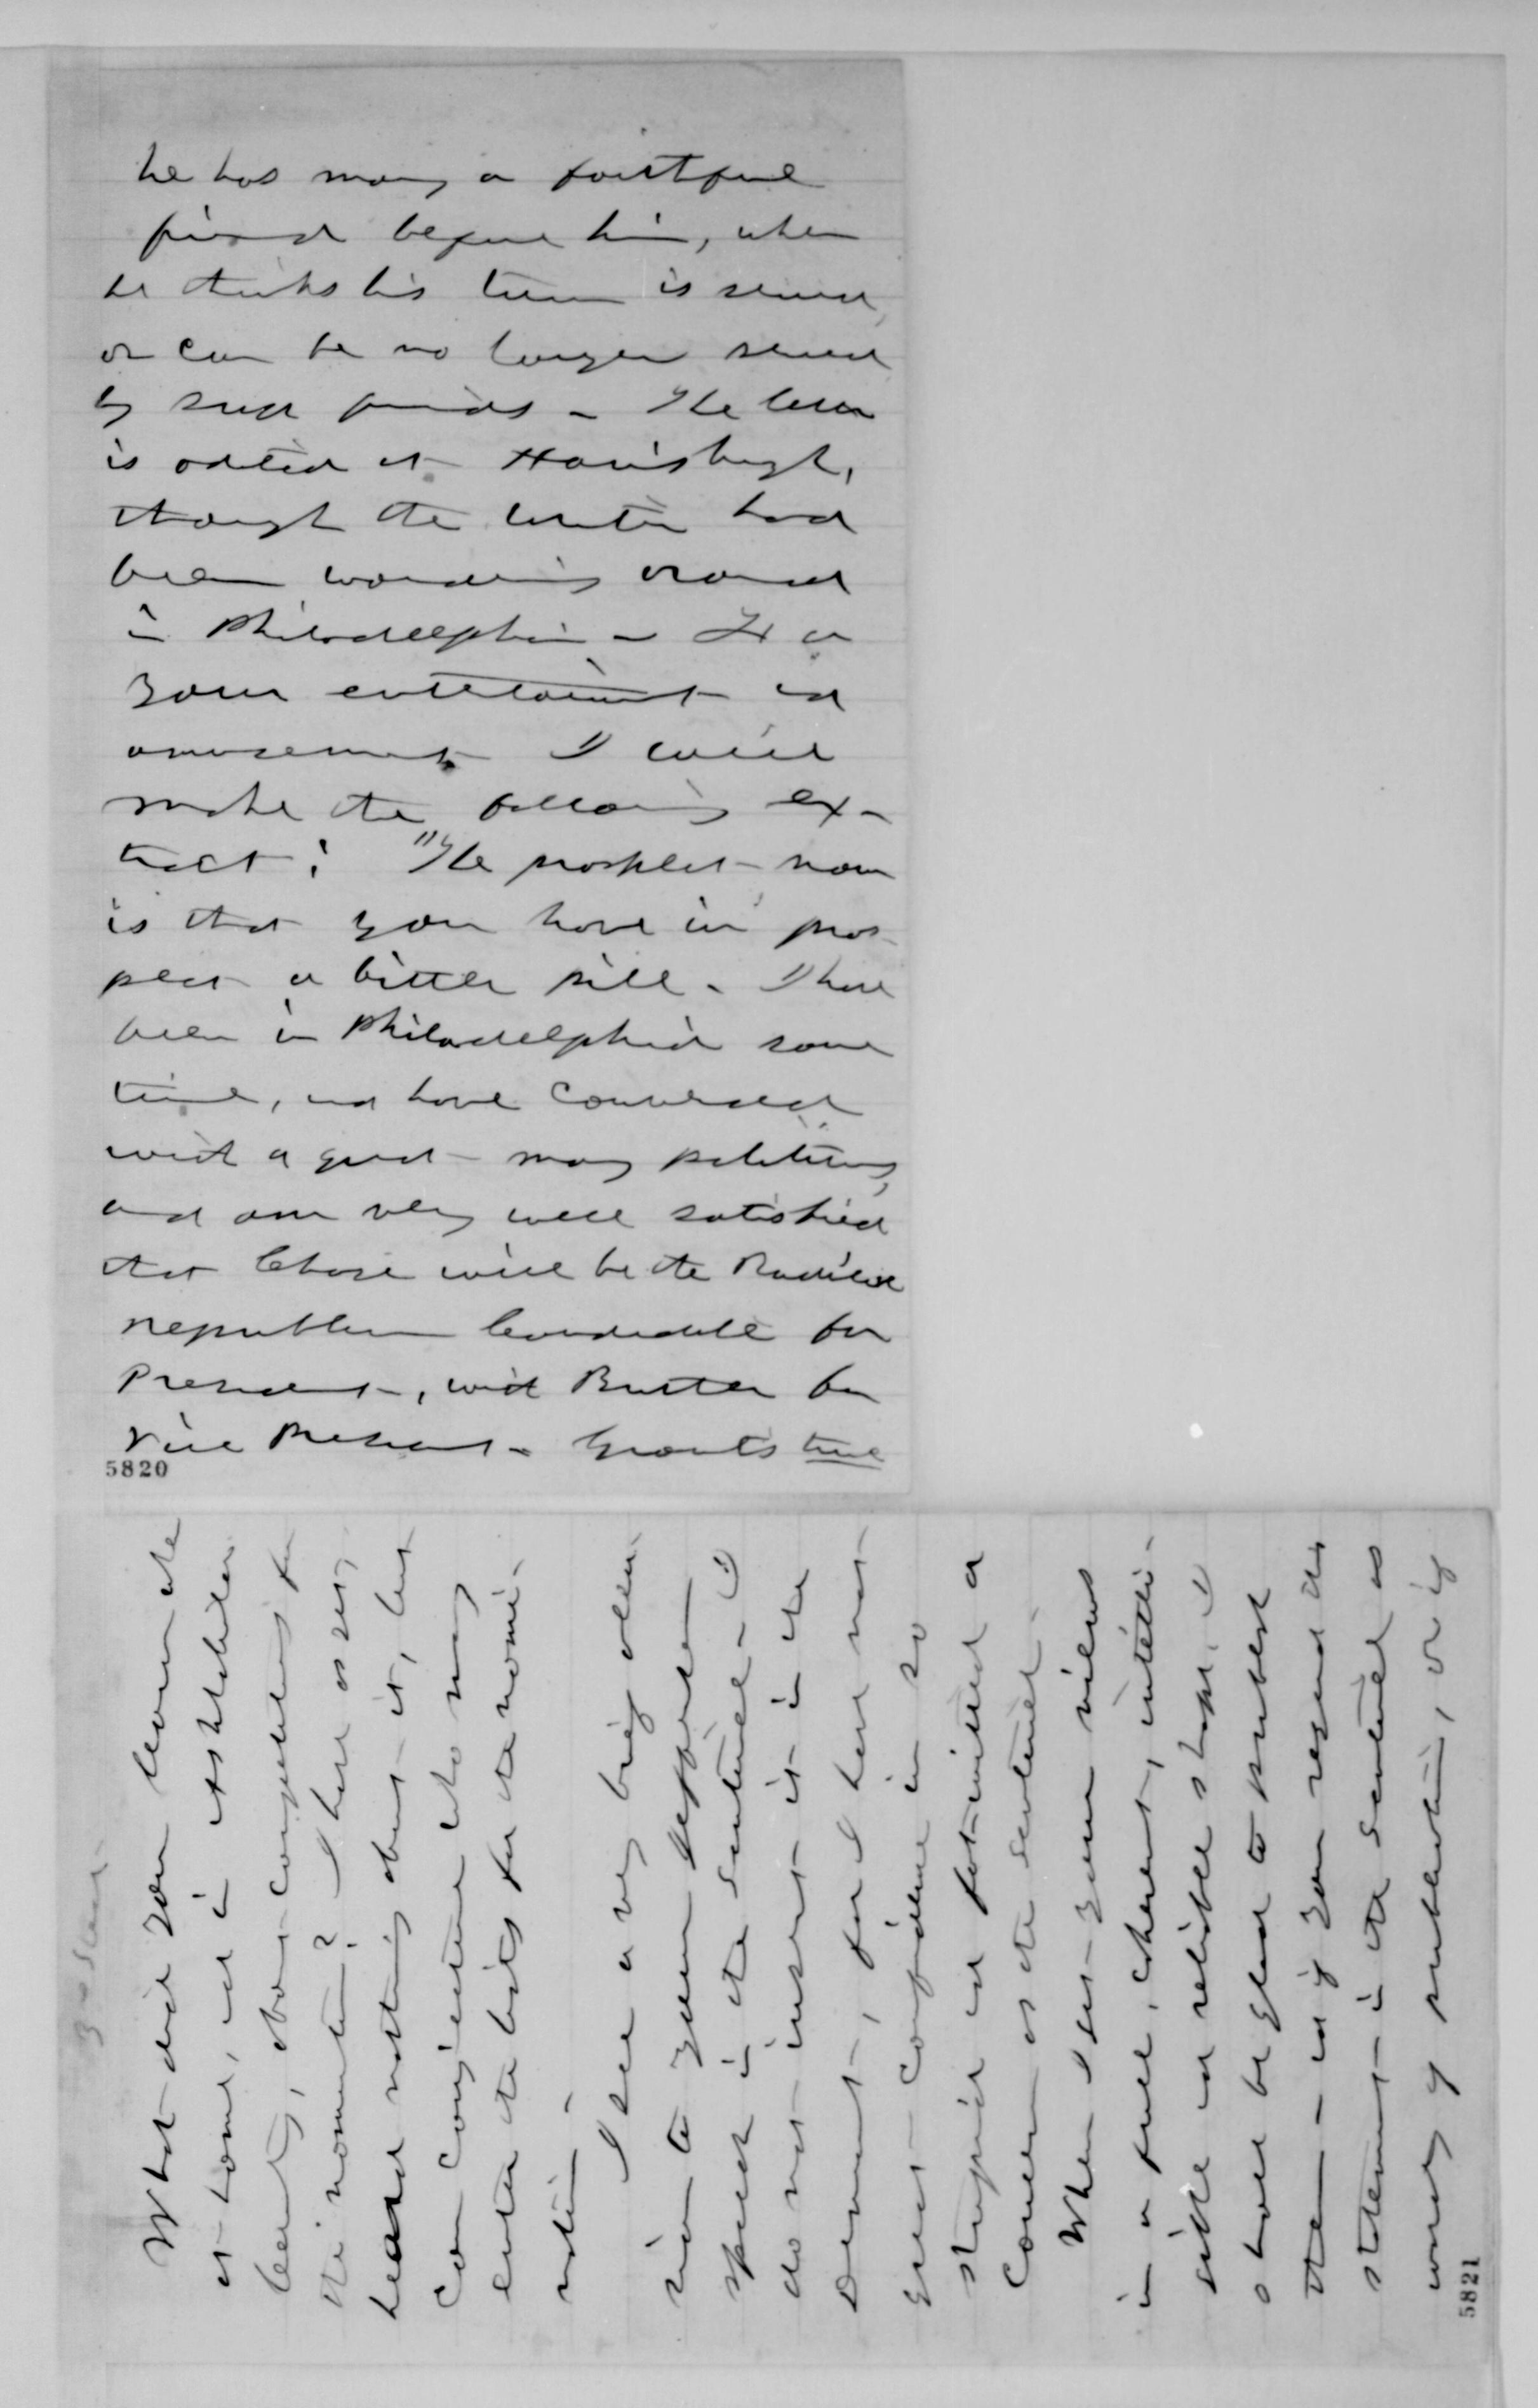 he has many a faithful
friend before him, when
he thinks his turn is served,
or can be no longer served
by such friends - The letter
is dated at Harrisburgh,
though the writer had
been wandering around
in Philadelphia - For
your entertainment and
amusement I will
make the following ex-
tract: "The prospect now
is that you have in pros-
pect a bitter pill - I have
been in Philadelphia some
time, and have conversed
with a great many politicians,
and am very well satisfied
that Chase will be the Radical
republican Candidate for
President, with Butler for
Vice President - Grants time
5820
What did you learn while
at home, and in
County, about competitors for
the nomination? I have as yet
heard nothing about it, but
can conjecture who may
enter the lists for the nomi-
nation -
I see a very brief allu-
sion to your
speech in the Sentinel - I
do not insert it in the
Democrat, for I have not
great confidence in so
stupid and
Concern as the Sentinel.
When I get your views
in a full, coherent, intelli-
gible and reliable shape, I
shall be glad to publish
them - and if you regard the
statement in the Sentinel as
worthy of publication, or if
5821